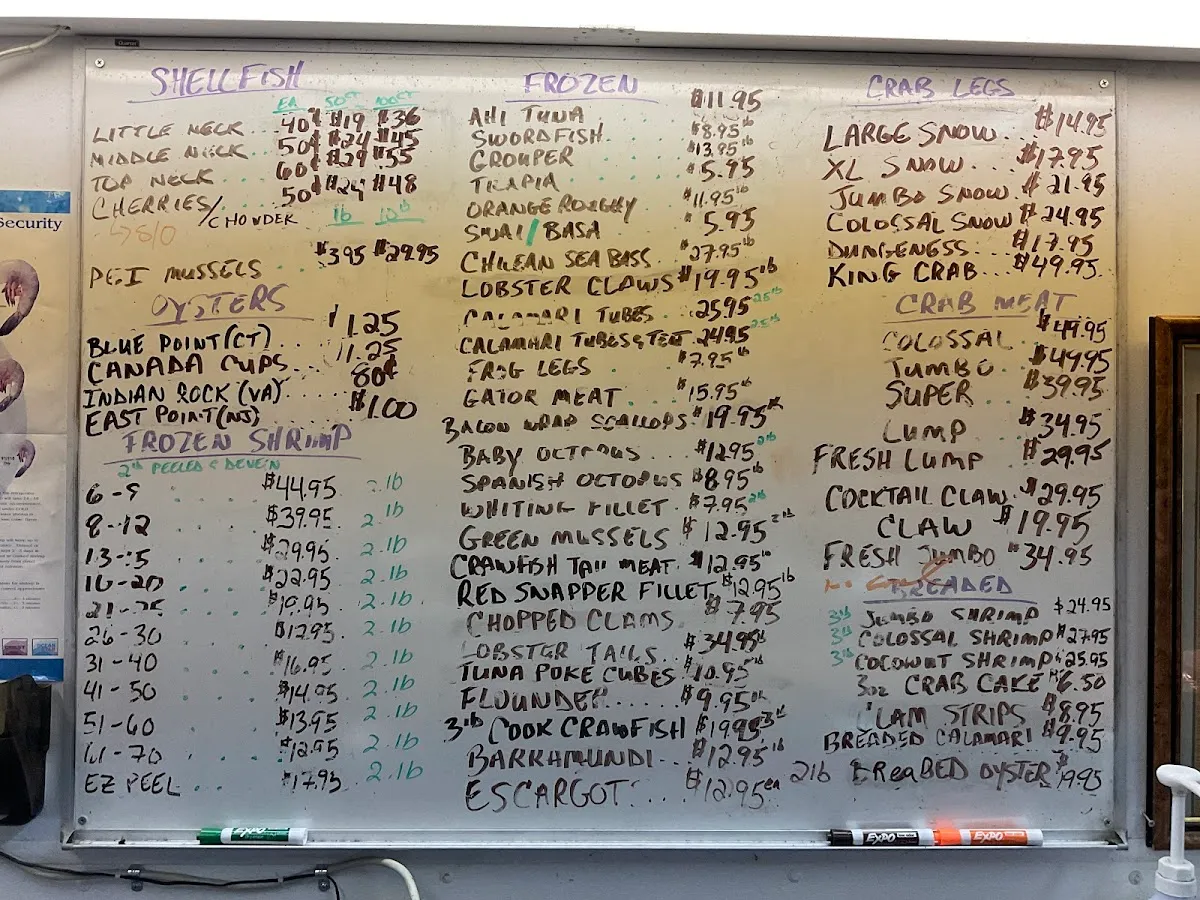 Quartet
SHELLFISH
EA 50CT 100CT
LITTLE NECK .. 40¢ $19 $36
MIDDLE NECK . 50¢ $24 $45
TOP NECK ... 60¢ $29 $55
CHERRIES/CHOWDER 50¢ $24 $48
lb 10lb
PEI MUSSELS . $395 $29.95
OYSTERS
BLUE POINT (CT) .. $1.25
CANADA CUPS... 1.25
INDIAN ROCK (VA) .. 80¢
EAST POINT (NJ) .. $1.00
FROZEN SHRIMP
2lb PEELED & DEVEIN
6-9 $44.95 2.lb
8-12 $39.95 2.lb
13-15 $29.95 2.lb
16-20 $22.95 2.lb
21-25 2.lb
26-30 $12.95 2.lb
31-40 $16.95 2.lb
41-50 $14.95 2.lb
51-60 $13.95 2.lb
61-70 $12.95 2.lb
EZ PEEL $17.95 2.lb
FROZEN
AHI TUNA $11.95
SWORDFISH $8.95lb
GROUPER $13.95lb
TILAPIA $5.95
ORANGE ROUGHY $11.95lb
SWAI/BASA $5.95
CHILEAN SEA BASS $27.95lb
LOBSTER CLAWS $19.95lb
CALAMARI TUBES .. 25.95
CALAMARI TUBES & TENT 24.95
FROG LEGS $7.95lb
GATOR MEAT . $15.95lb
BACON WRAP SCALLOPS $19.95
BABY OCTOPUS .. $12.95 2lb
SPANISH OCTOPUS $8.95lb
WHITING FILLET . $7.95 2lb
GREEN MUSSELS $12.95 2lb
CRAWFISH TAIL MEAT $12.95lb
RED SNAPPER FILLET $12.95lb
CHOPPED CLAMS. $7.95
LOBSTER TAILS .. $34.95lb
TUNA POKE CUBES $10.95lb
FLOUNDER .... $9.95lb
3lb COOK CRAWFISH $19.95 3lb
BARRAMUNDI .. $12.95lb
ESCARGOT .... $12.95ea
CRAB LEGS
LARGE SNOW .. $14.95
XL SNOW .. $17.95
JUMBO SNOW. $21.95
COLOSSAL SNOW $24.95
DUNGENESS... $17.95
KING CRAB... $49.95
CRAB MEAT
COLOSSAL . $49.95
JUMBO . $49.95
SUPER $39.95
LUMP . $34.95
FRESH LUMP . $29.95
COCKTAIL CLAW. $29.95
CLAW $19.95
FRESH JUMBO $34.95
BREADED
3lb JUMBO SHRIMP $24.95
3lb COLOSSAL SHRIMP $27.95
3lb COCONUT SHRIMP $25.95
3oz CRAB CAKE $6.50
CLAM STRIPS $8.95
BREADED CALAMARI $9.95
2lb BREADED OYSTER $19.95
Security
EXPO
EXPO
EXPO